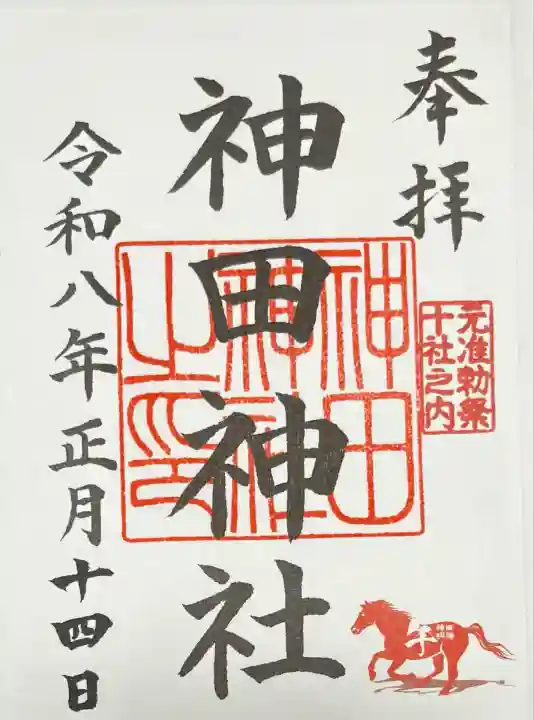 奉拝
元准勅祭
十社之内
神田神社
神田
神社
之印
午
令和八年正月十四日